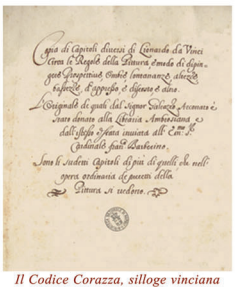 Copia di Capitoli diversi di Lionardo da Vinci
Circa le Regole della Pittura, e modo di dipin-
gere Prospettive, Ombre, lontananze, altezze
bassezze, d'appresso e discosto e altro.
L'Originale de quali dal Signor Galeazzo Arconato è
stato donato alla Libraria Ambrosiana e
dall'istesso stata inviata all' Em.mo S.r
Cardinale Fran.co Barberino.
Sono li sudetti Capitoli di più di quelli che nell'
opera ordinaria de precetti della
Pittura si vedono.
Il Codice Corazza, silloge vinciana